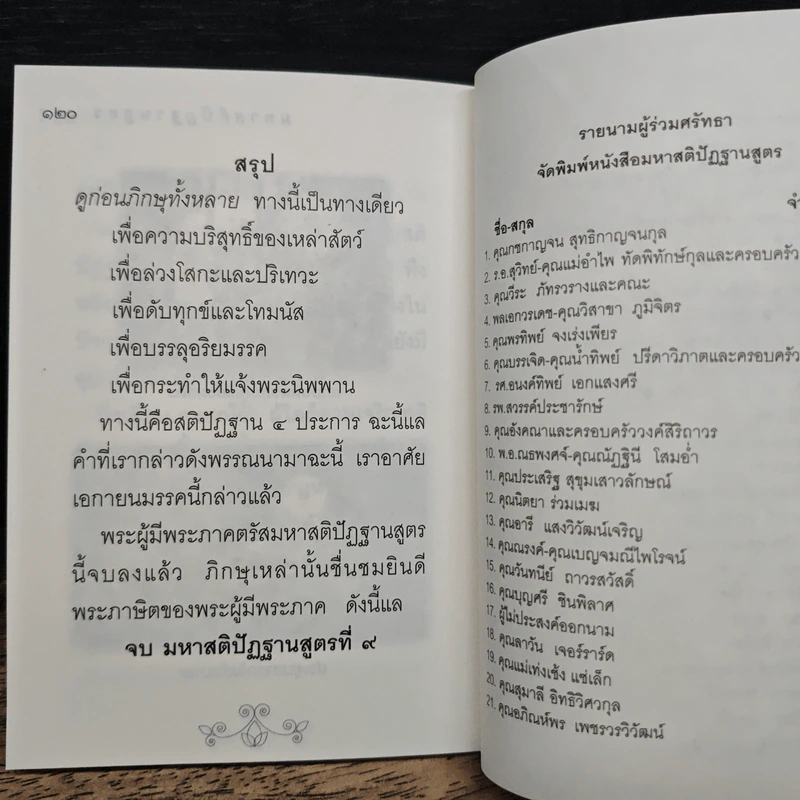 ๑๒๐
สรุป
ดูก่อนภิกษุทั้งหลาย ทางนี้เป็นทางเดียว
เพื่อความบริสุทธิ์ของเหล่าสัตว์
เพื่อล่วงโสกะและปริเทวะ
เพื่อดับทุกข์และโทมนัส
เพื่อบรรลุอริยมรรค
เพื่อกระทำให้แจ้งพระนิพพาน
ทางนี้คือสติปัฏฐาน ๔ ประการ ฉะนี้แล
คำที่เรากล่าวดังพรรณนามาฉะนี้ เราอาศัย
เอกายนมรรคนี้กล่าวแล้ว
พระผู้มีพระภาคตรัสมหาสติปัฏฐานสูตร
นี้จบลงแล้ว ภิกษุเหล่านั้นชื่นชมยินดี
พระภาษิตของพระผู้มีพระภาค ดังนี้แล
จบ มหาสติปัฏฐานสูตรที่ ๙
รายนามผู้ร่วมศรัทธา
จัดพิมพ์หนังสือมหาสติปัฏฐานสูตร
ชื่อ-สกุล
1. คุณกชกาญจน สุทธิกาญจนกุล
2. ร.อ.สุวิทย์-คุณแม่อำไพ ทัดพิทักษ์กุลและครอบครัว
3. คุณวีระ ภัทรวรางและคณะ
4. พลเอกวรเดช-คุณวิสาขา ภูมิจิตร
5. คุณพรทิพย์ จงเร่งเพียร
6. คุณบรรเจิด-คุณน้ำทิพย์ ปรีดาวิภาตและครอบครัว
7. รศ.อนงค์ทิพย์ เอกแสงศรี
8. รพ.สวรรค์ประชารักษ์
9. คุณอังคณาและครอบครัววงค์สิริถาวร
10. พ.อ.ณธพงศจ์-คุณณัฏฐินี โสมอ่ำ
11. คุณประเสริฐ สุขุมเสาวลักษณ์
12. คุณนิตยา ร่วมเมฆ
13. คุณอารี แสงวิวัฒน์เจริญ
14. คุณณรงค์-คุณเบญจมณีไพโรจน์
15. คุณวันทนีย์ ถาวรสวัสดิ์
16. คุณบุญศรี ชินพิลาศ
17. ผู้ไม่ประสงค์ออกนาม
18. คุณลาวัน เจอร์ราร์ด
19. คุณแม่เท่งเช้ง แซ่เล็ก
20. คุณสุมาลี อิทธิวิศวกุล
21. คุณอภิณห์พร เพชรวรวิวัฒน์